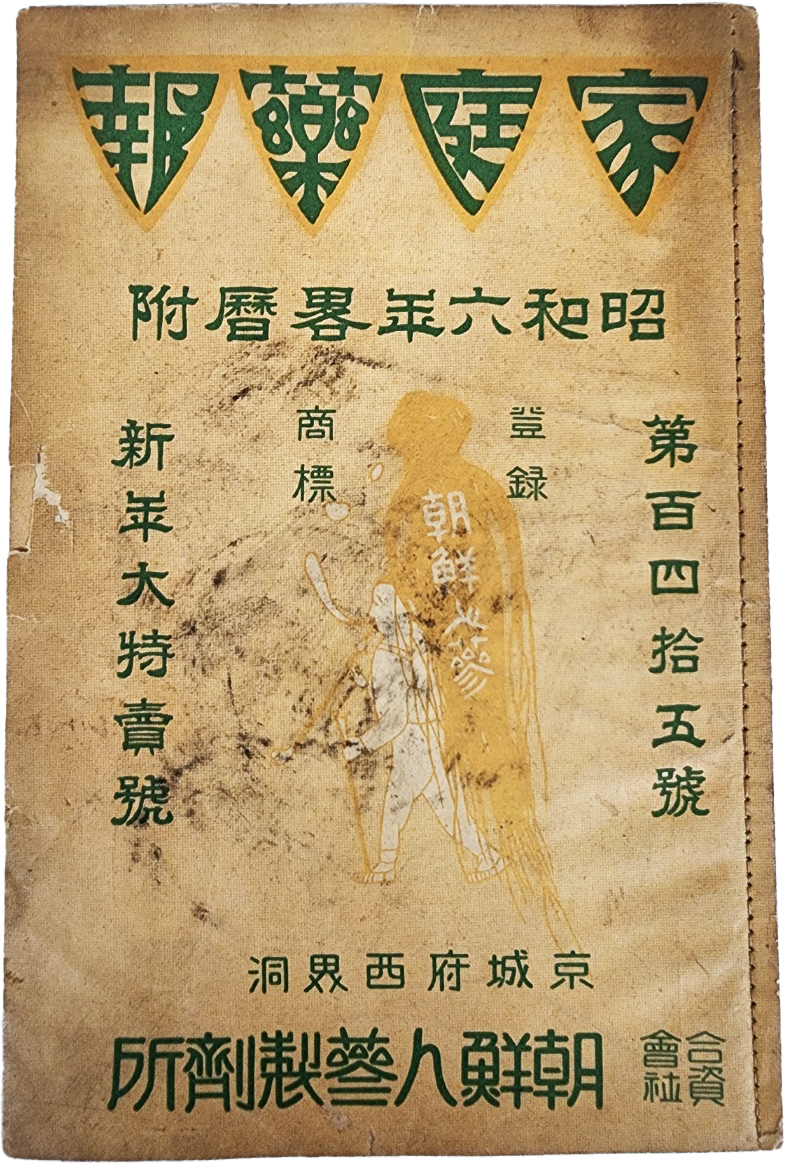 家庭藥報
昭和六年畧曆附
第百四拾五號
登録
商標
新年大特賣號
朝鮮人蔘
京城府西界洞
合資會社
朝鮮人蔘製劑所